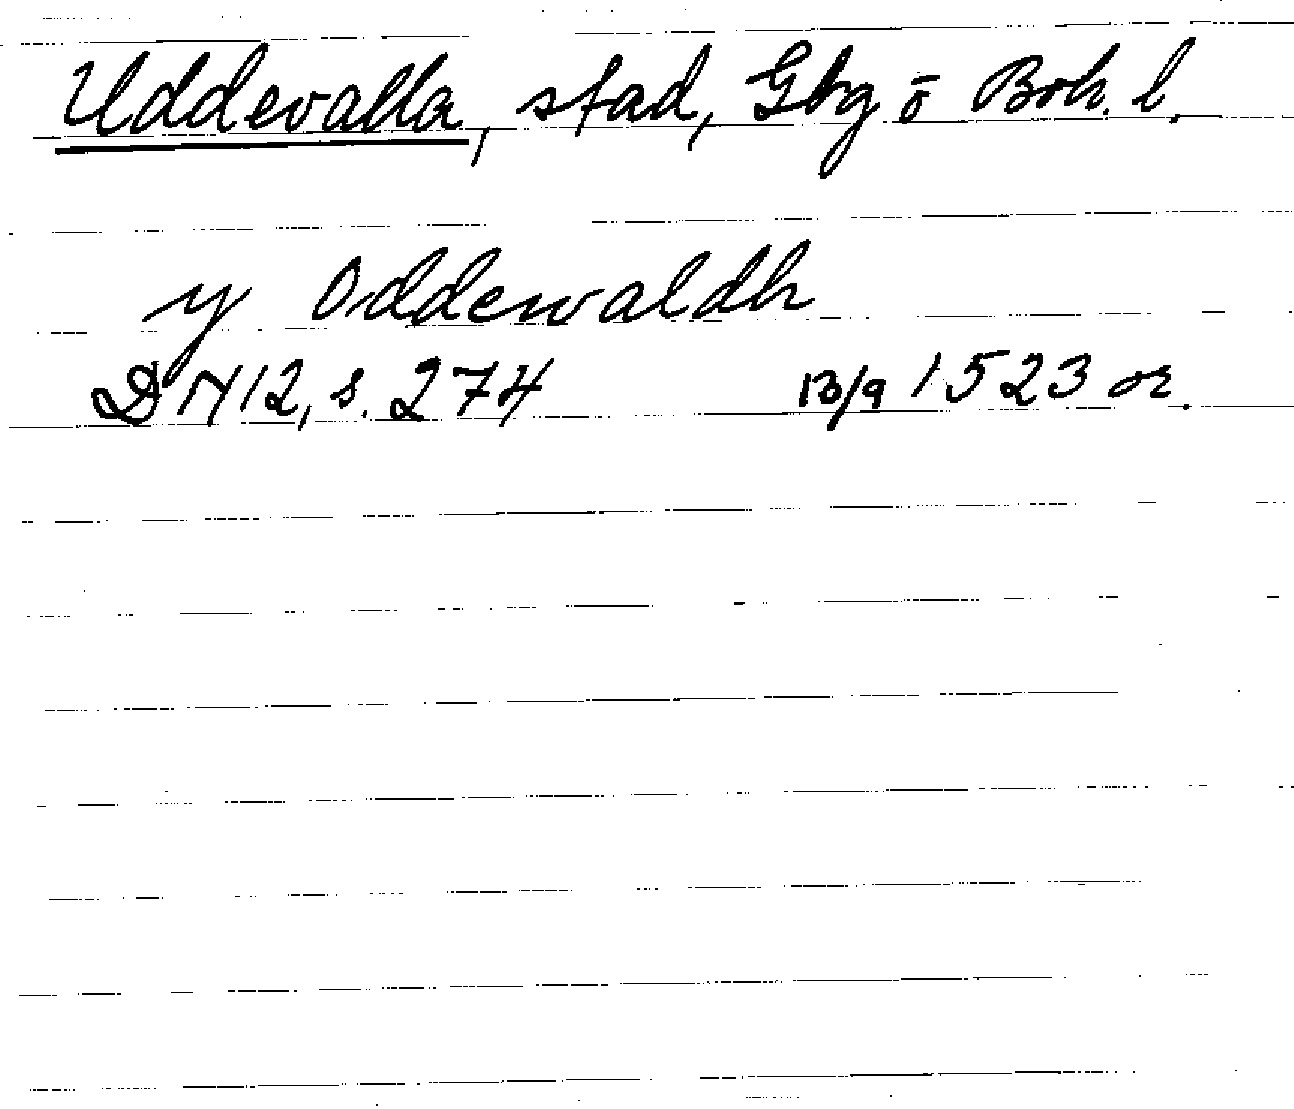 Uddevalla, stad, Gbg o Boh. l.
y Oddewaldh
DN 12, s. 274 13/9 1523 or.